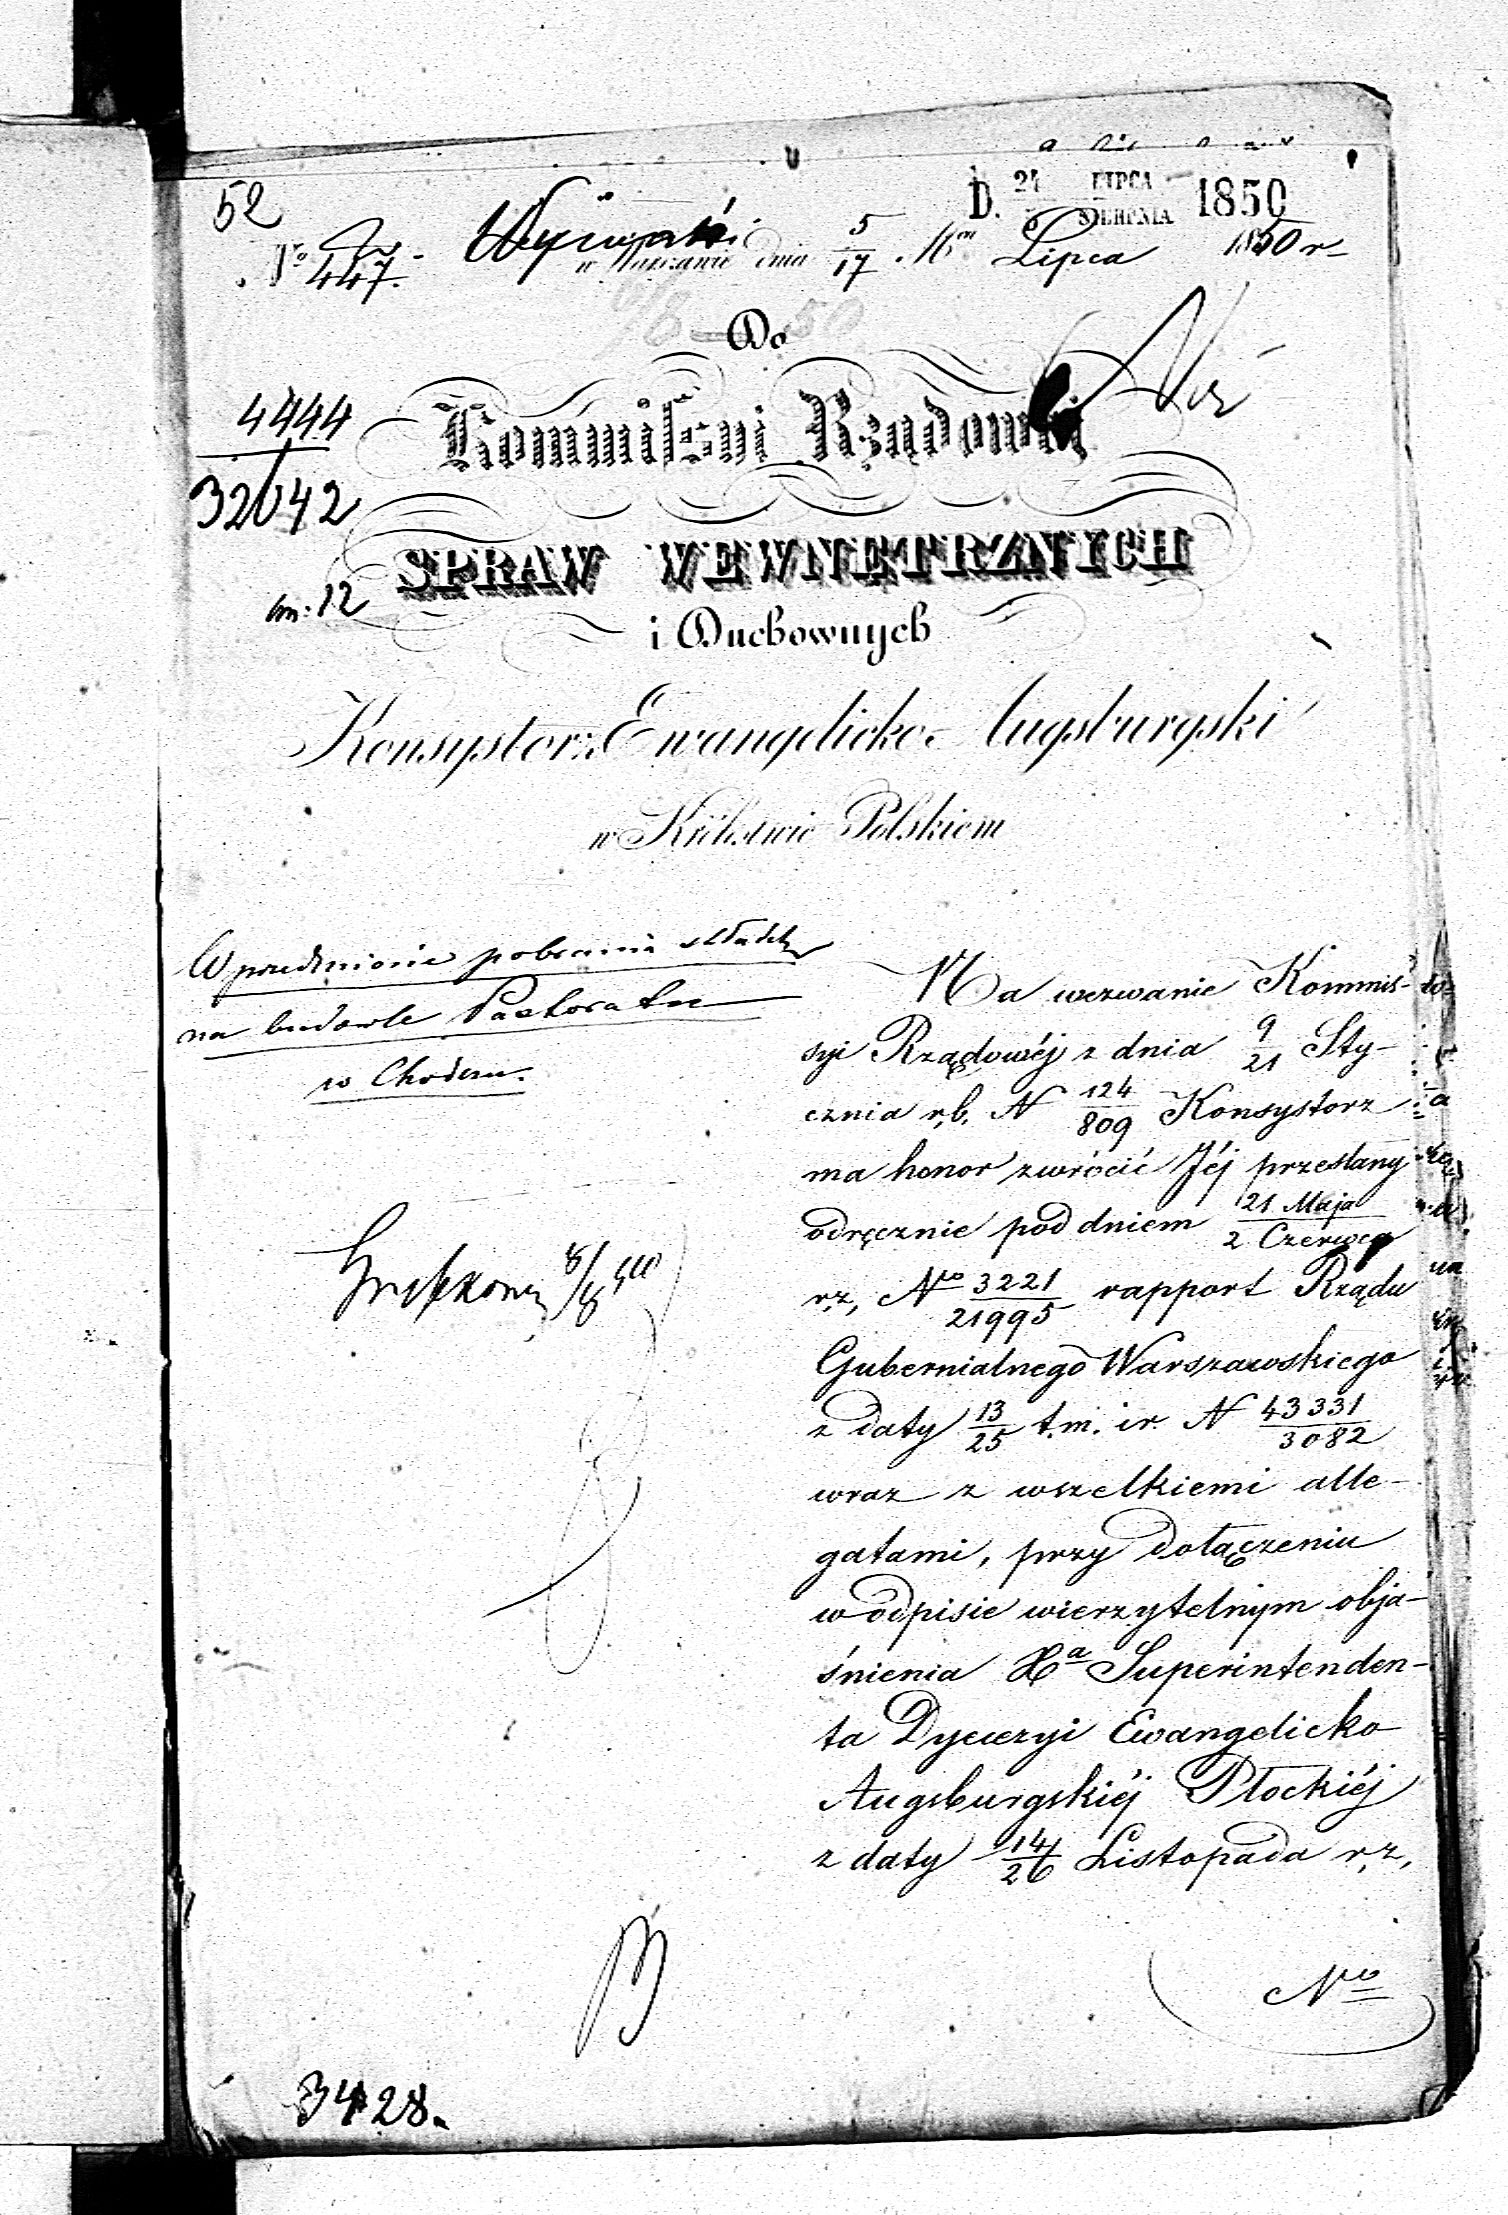 52
D. 24 LIPCA 1850
SIERPNIA
No 447. w Warszawie dnia 5/17 Mca Lipca 1850 r
Do
4444
32042
Kommissyi Rządowéj
SPRAW WEWNĘTRZNYCH
12
i Duchownych
Konsystorz Ewangelicko-Augsburgski
w Królestwie Polskiem
W przedmiocie pobrania składek
na budowle Pastoratu
w Chodczu.
Na wezwanie Kommis-
syi Rządowéj z dnia 9/21 Sty-
cznia r.b. N 124/809 Konsystorz
ma honor zwrócić Jéj przesłany
odręcznie pod dniem 21 Maja/2 Czerwca
r.z, No 3221/21995 rapport Rządu
Gubernialnego Warszawskiego
z daty 13/25 t.m. i r. N 43331/3082
wraz z wszelkiemi alle-
gatami, przy dołączeniu
w odpisie wierzytelnym obja-
śnienia Xa Superintenden-
ta Dyecezyi Ewangelicko
Augsburgskiéj Płockiéj
z daty 14/26 Listopada r.z,
No
3428.